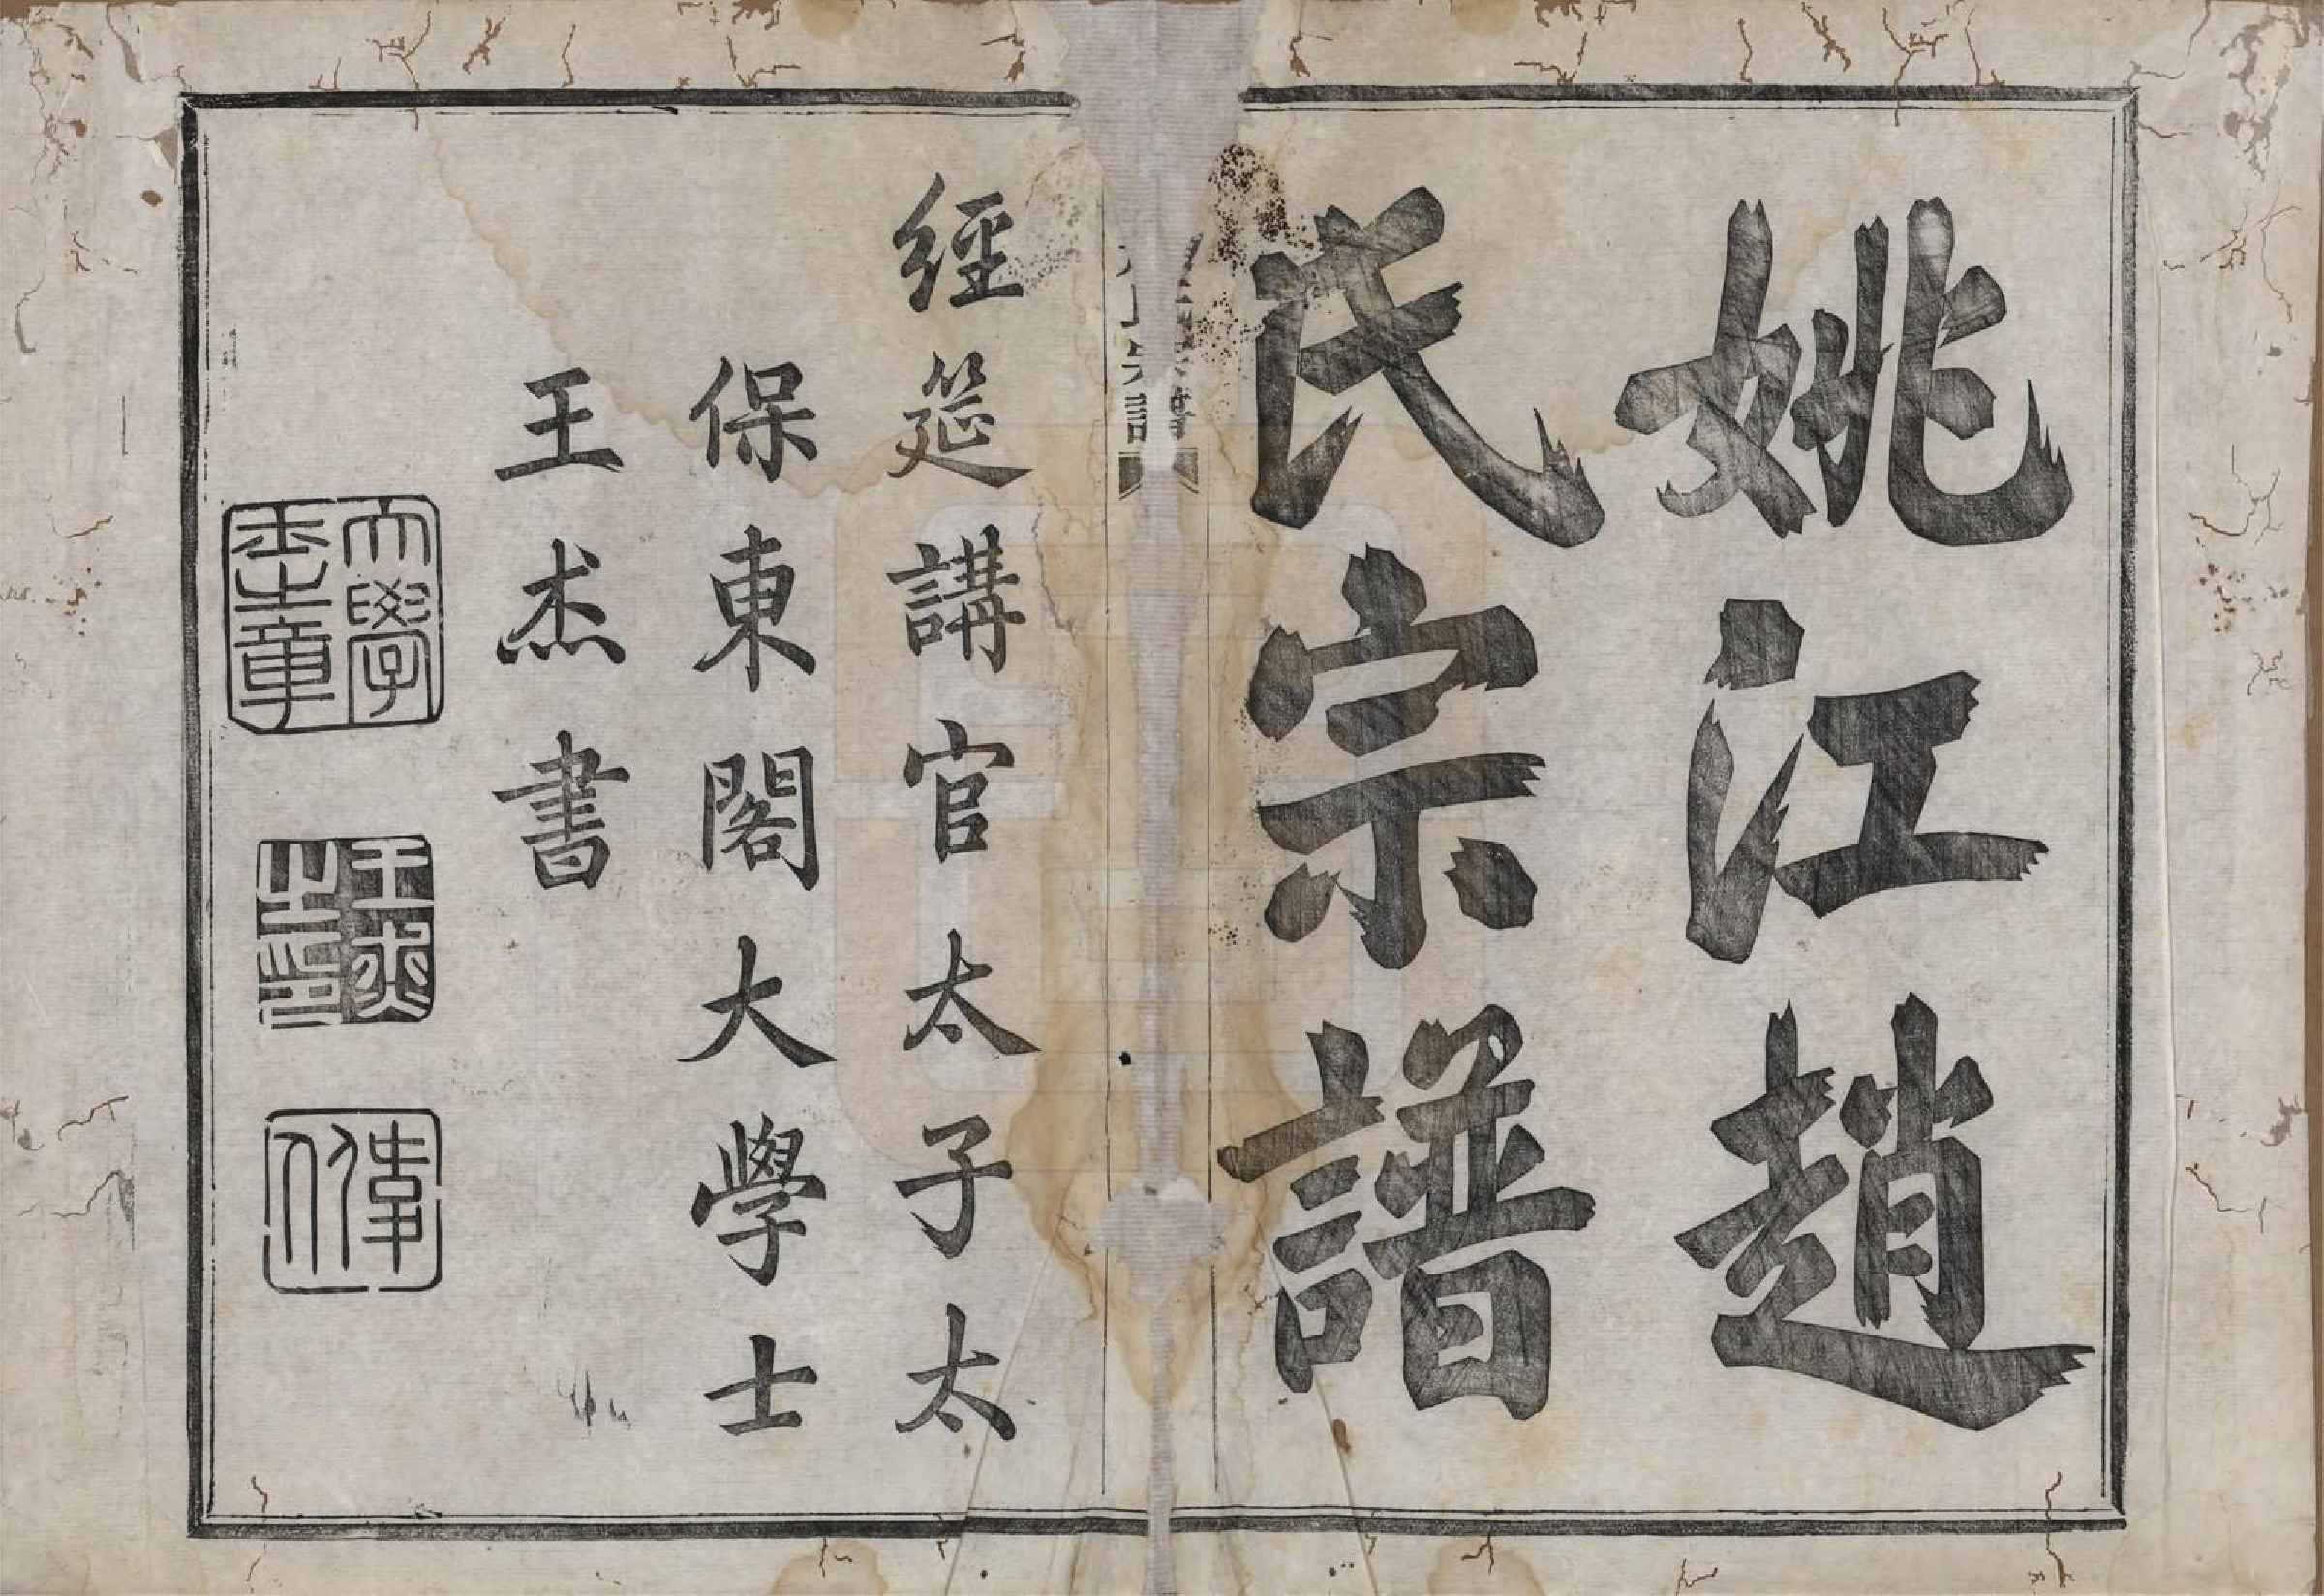 姚江趙
氏宗譜
氏宗譜
經筵講官太子太
保東閣大學士
王杰書
大學士章
王杰之印
偉人